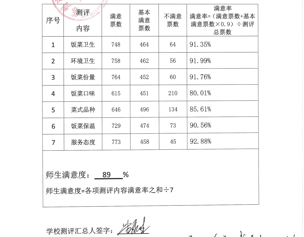 序号 测评内容 满意票数 基本满意票数 不满意票数 满意率
满意率=(满意票数+基本满意票数×0.9)÷测评总票数
1 饭菜卫生 748 464 64 91.35%
2 环境卫生 758 462 56 91.99%
3 饭菜份量 764 452 60 91.76%
4 饭菜口味 615 451 210 80.01%
5 菜式品种 646 496 134 85.61%
6 饭菜保温 729 474 73 90.56%
7 服务态度 773 458 45 92.88%
师生满意度: 89 %
师生满意度=各项测评内容满意率之和÷7
学校测评汇总人签字: